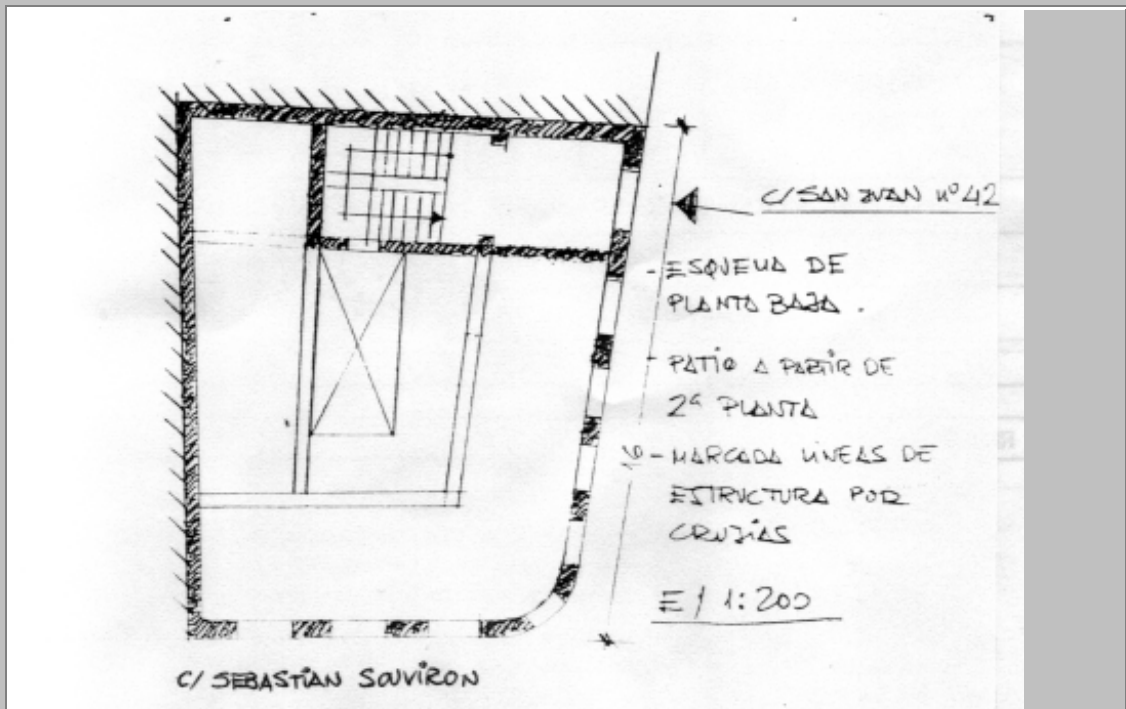 C/ SAN JUAN nº 42
- ESQUEMA DE
PLANTA BAJA .
- PATIO A PARTIR DE
2ª PLANTA
- MARCADA LINEAS DE
ESTRUCTURA POR
CRUJIAS
16
E / 1:200
C/ SEBASTIAN SOUVIRON